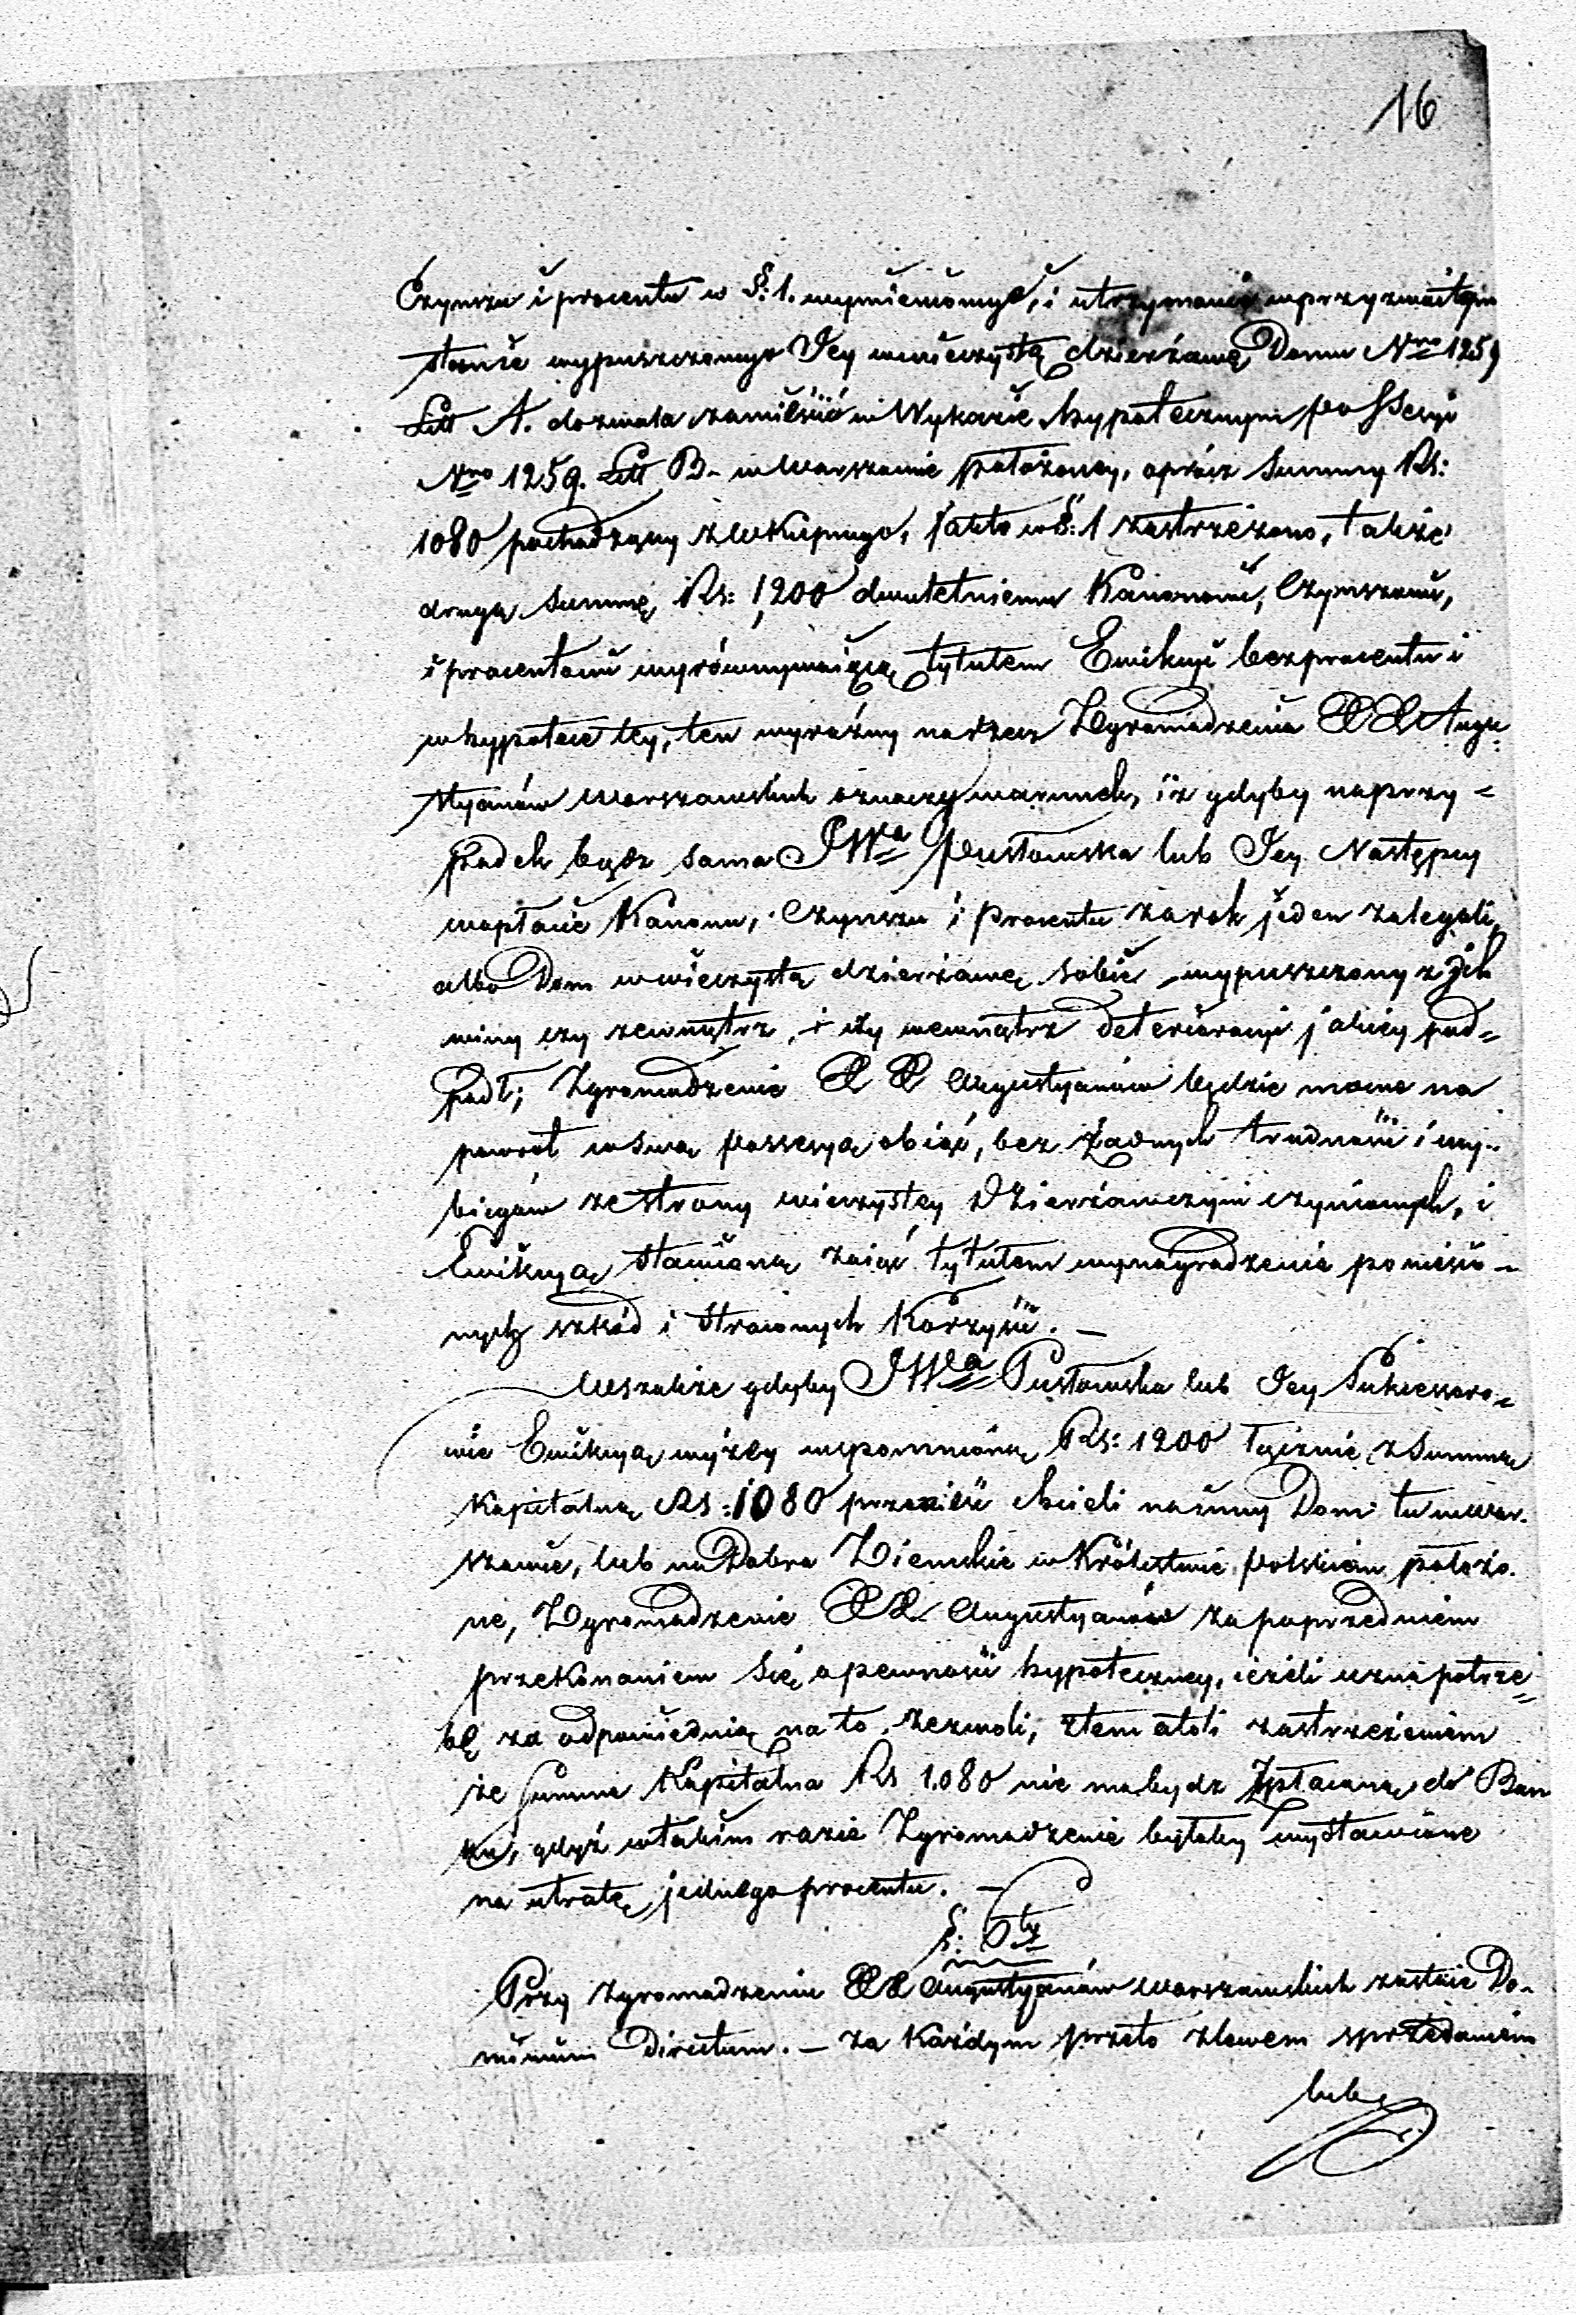 16
Czynszu i procentu w §: 1. wymienionych, i utrzymania w przyzwoitym
stanie wypuszczonego Jey w wieczystą dzierżawę Domu Nro 1259
Litt A. dozwala zamieścić w Wykazie hypotecznym possesyi
Nro 1259. Litt B. w Warszawie położoney, oprócz Summy Rs:
1080 pochodzącey z Wkupnego, jak to w §: 1 zastrzeżono, także
drugą Summę Rs: 1,200 dwuletniemu Kanonowi, Czynszowi,
i procentowi wyrównywaiącą tytułem Ewikcyi bez procentu i
w hypotece tey, ten wyraźny na rzecz Zgromadzenia XX Augu-
styanów Warszawskich oznaczy warunek, iż gdyby na przy-
padek bądz sama JWa Pusłowska lub Jey Następcy
w opłacie Kanonu, Czynszu i procentu za rok jeden zalegali,
albo Dom w wieczystą dzierżawę sobie wypuszczony z Jch
winy czy zewnątrz, i czy wewnątrz deterioracyi jakiey pod-
padł; Zgromadzenie XX Augustyanów będzie mocne na
powrót w swą possesyą obiąć, bez żadnych trudności i wy-
biegów ze strony wieczystey Dzierżawczyni czynionych, i
Ewikcyą stawioną zaiąć tytułem wynagrodzenia poniesio-
nych szkód i straconych Korzyści. —
Wszakże gdyby JWa Pusłowska lub Jey Sukcessoro-
wie Ewikcyą wyżey wspomnioną Rs: 1200 łącznie z Summą
Kapitalną Rs: 1080 przenieść chcieli na inny Dom tu w War-
szawie, lub na Dobra Ziemskie w Królestwie Polskiem położo-
ne, Zgromadzenie XX Augustyanów za poprzedniem
przekonaniem się o pewności hypoteczney, ieżeli uzna potrze-
bę za odpowiednią na to zezwoli, z tem atoli zastrzeżeniem
że Summa Kapitalna Rs 1.080 nie ma bydz spłacaną do Ban
ku, gdyż w takim razie Zgromadzenie byłoby wystawione
na utratę jednego procentu. —
§: 6ty
Przy Zgromadzeniu XX Augustyanów Warszawskich zostaie Do-
minium Directum. — Za każdym przeto zlewem sprzedaniem
lub